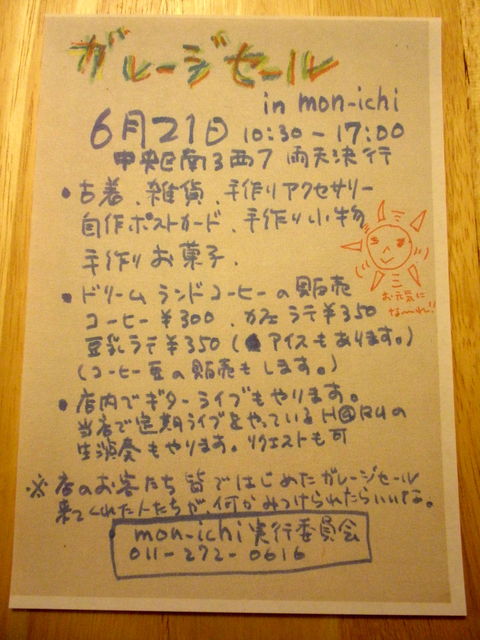 ガレージセール
in mon-ichi
6月21日 10:30-17:00
中央区南3西7 雨天決行
•古着、雑貨、手作りアクセサリー
自作ポストカード、手作り小物
手作りお菓子.
お元気に
な〜れ!!
•ドリームランドコーヒーの販売
コーヒー¥300、カフェラテ¥350
豆乳ラテ¥350(アイスもあります。)
(コーヒー豆の販売もします。)
•店内でギターライブもやります。
当店で定期ライブをやっているH@RUの
生演奏もやります。リクエストも可
※店のお客たち皆ではじめたガレージセール
来てくれた人たちが、何かみつけられたらいいな。
mon-ichi実行委員会
011-272-0616